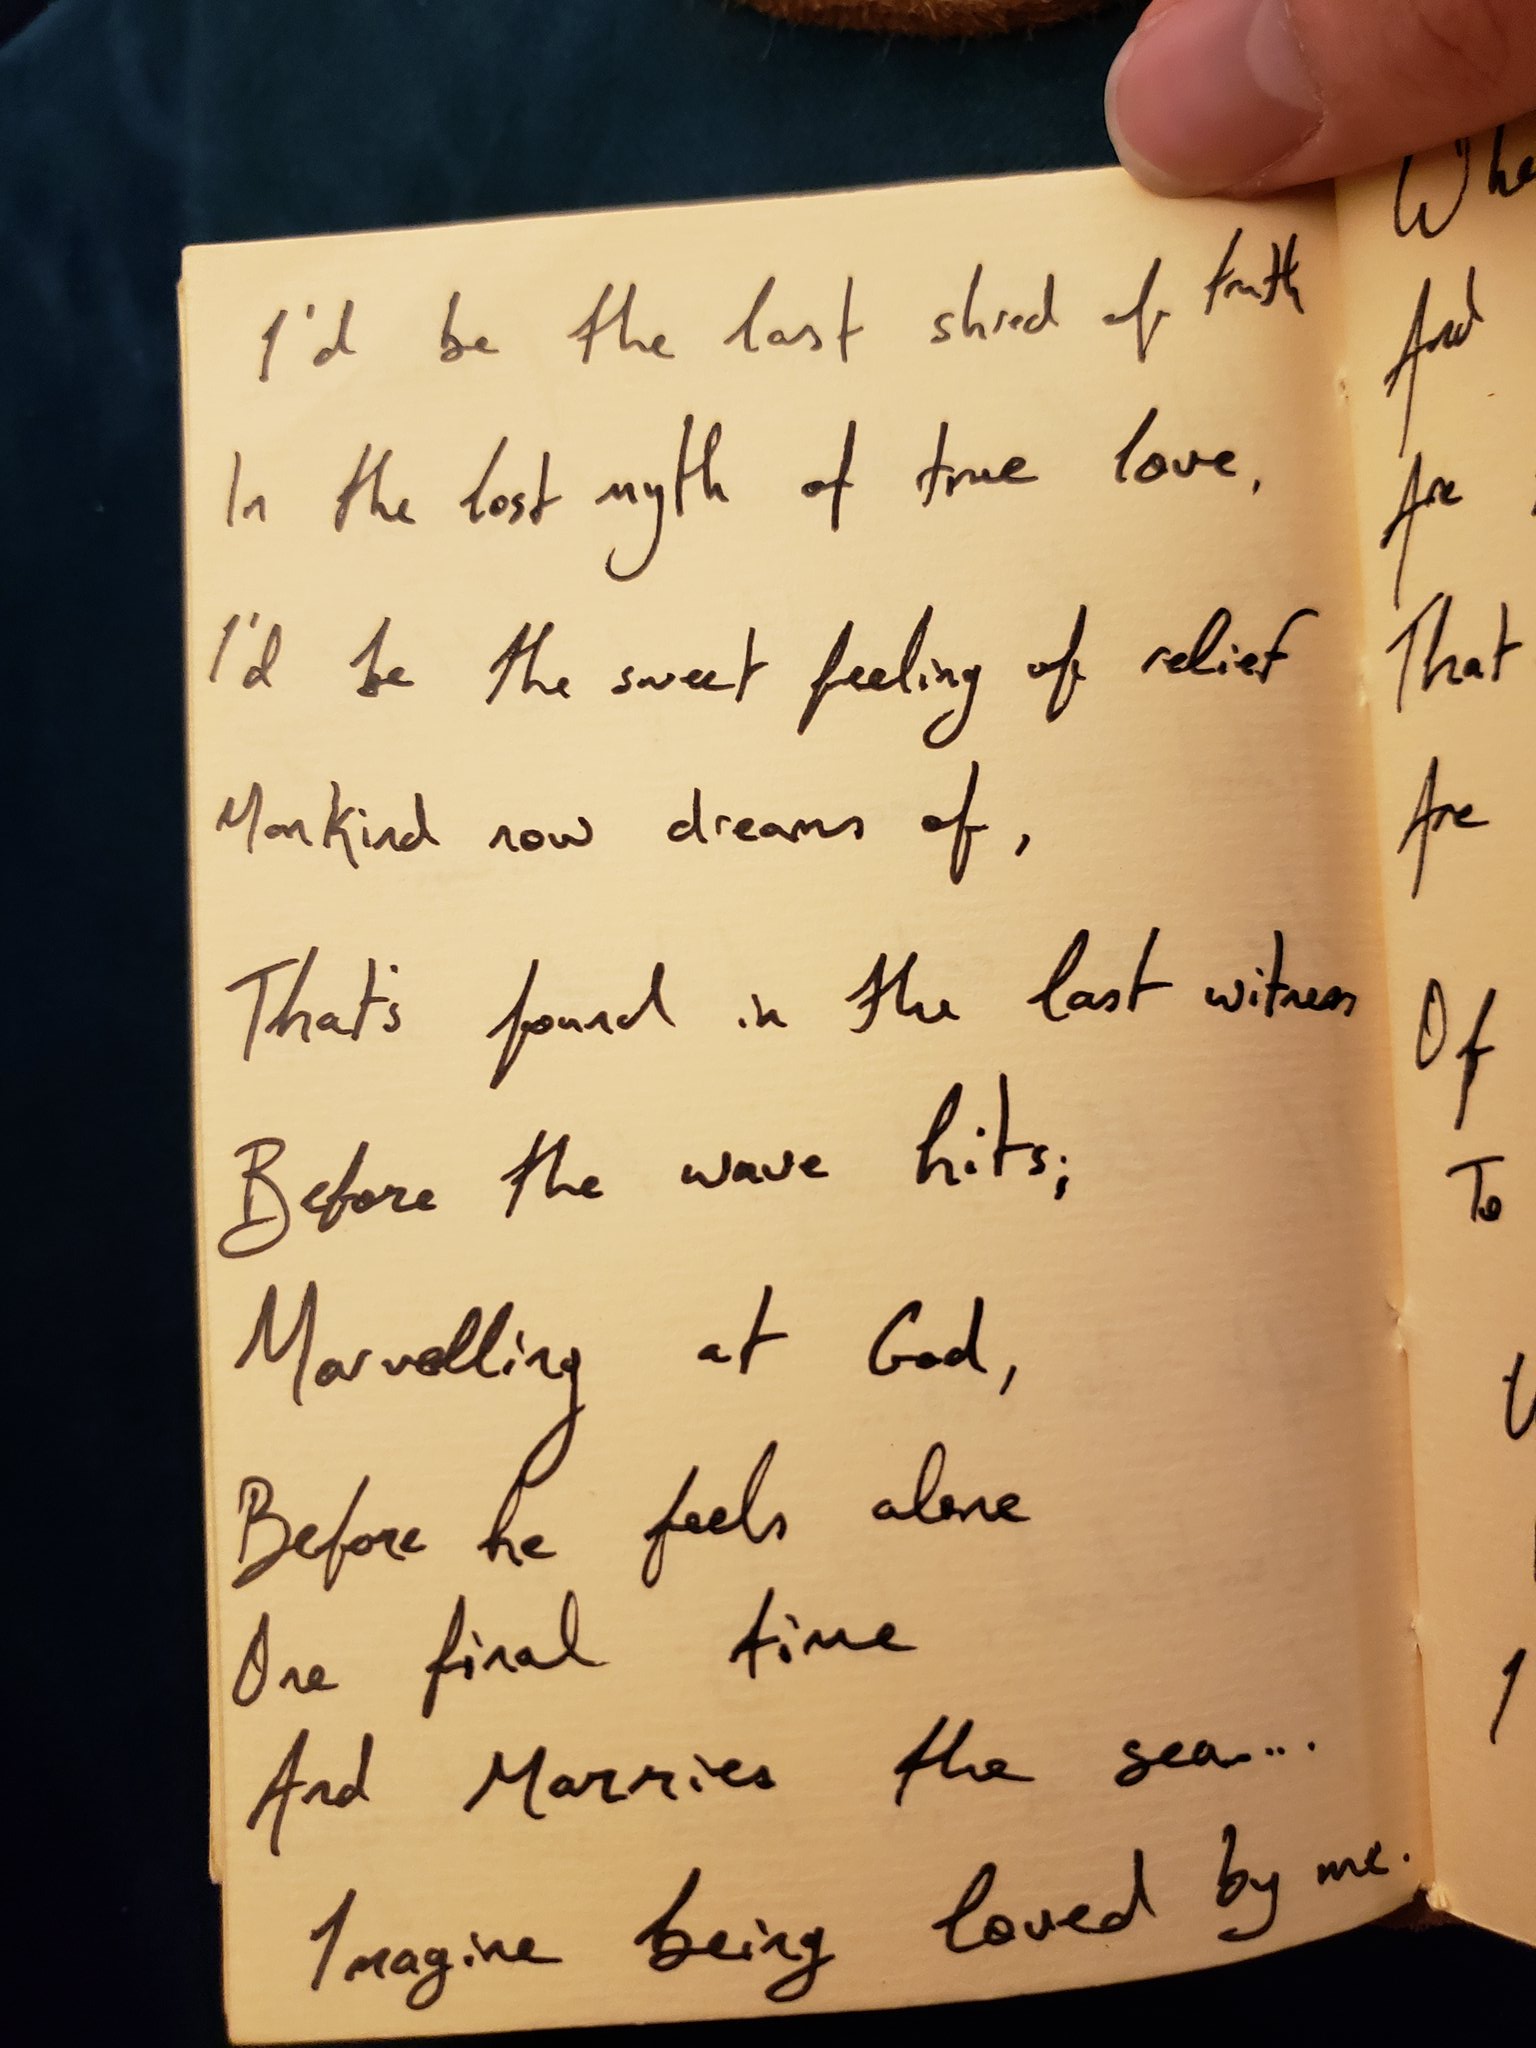 I'd be the last shred of truth
In the lost myth of true love,
I'd be the sweet feeling of relief
Mankind now dreams of,
That's found in the last witness
Before the wave hits;
Marvelling at God,
Before he feels alone
One final time
And Marries the sea....
Imagine being loved by me.
And
Are
That
Are
Of
To
I